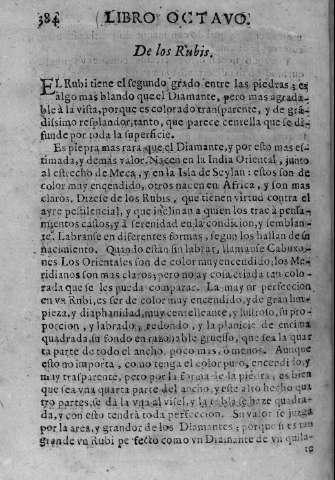 384 LIBRO OCTAVO.
De los Rubis.
EL Rubi tiene el segundo grado entre las piedras; es
algo mas blando que el Diamante, pero mas agrada-
ble à la vista, porque es colorado transparente, y de grã-
dissimo resplandor, tanto, que parece centella que se di-
funde por toda la superficie.
Es piedra mas rara que el Diamante, y por esto mas es-
timada, y de mas valor. Nacen en la India Oriental, junto
al estrecho de Meca, y en la Isla de Seylan: estos son de
color muy encendido, otros nacen en Africa, y son mas
claros. Dizese de los Rubis, que tienen virtud contra el
ayre pestilencial, y que inclinan à quien los trae à pensa-
mientos castos, y à serenidad en la condicion, y semblan-
te. Labranse en diferentes formas, segun los hallan de su
nacimiento. Quando estàn sin labrar, llamanse Cabuxo-
nes Los Orientales son de color muy encendido; los Me-
ridianos son mas claros; pero no ay cosa criada tan colo-
rada que se les pueda comparar. La mayor perfeccion
en vn Rubi, es ser de color muy encendido, y de gran lim-
pieza, y diaphanidad, muy centelleante, y lustroso, su pro-
porcion, y labrado, redondo, y la planicie de encima
quadrada, su fondo en razonable gruesso, que sea la quar
ta parte de todo el ancho, poco mas, ò menos. Aunque
esto no importa, como tenga el color puro, encendido, y
muy trasparente; pero por la forma de la piedra, es bien
que sea vna quarta parte del ancho, y este alto hecho qua
tro partes, se dà la vna al visel, y la tabla se haze quadra-
da, y con esto tendrà toda perfeccion. Su valor se juzga
por la area, y grandor de los Diamantes; porque si es tan
grande vn Rubi perfecto como vn Diamante de vn quila-
te